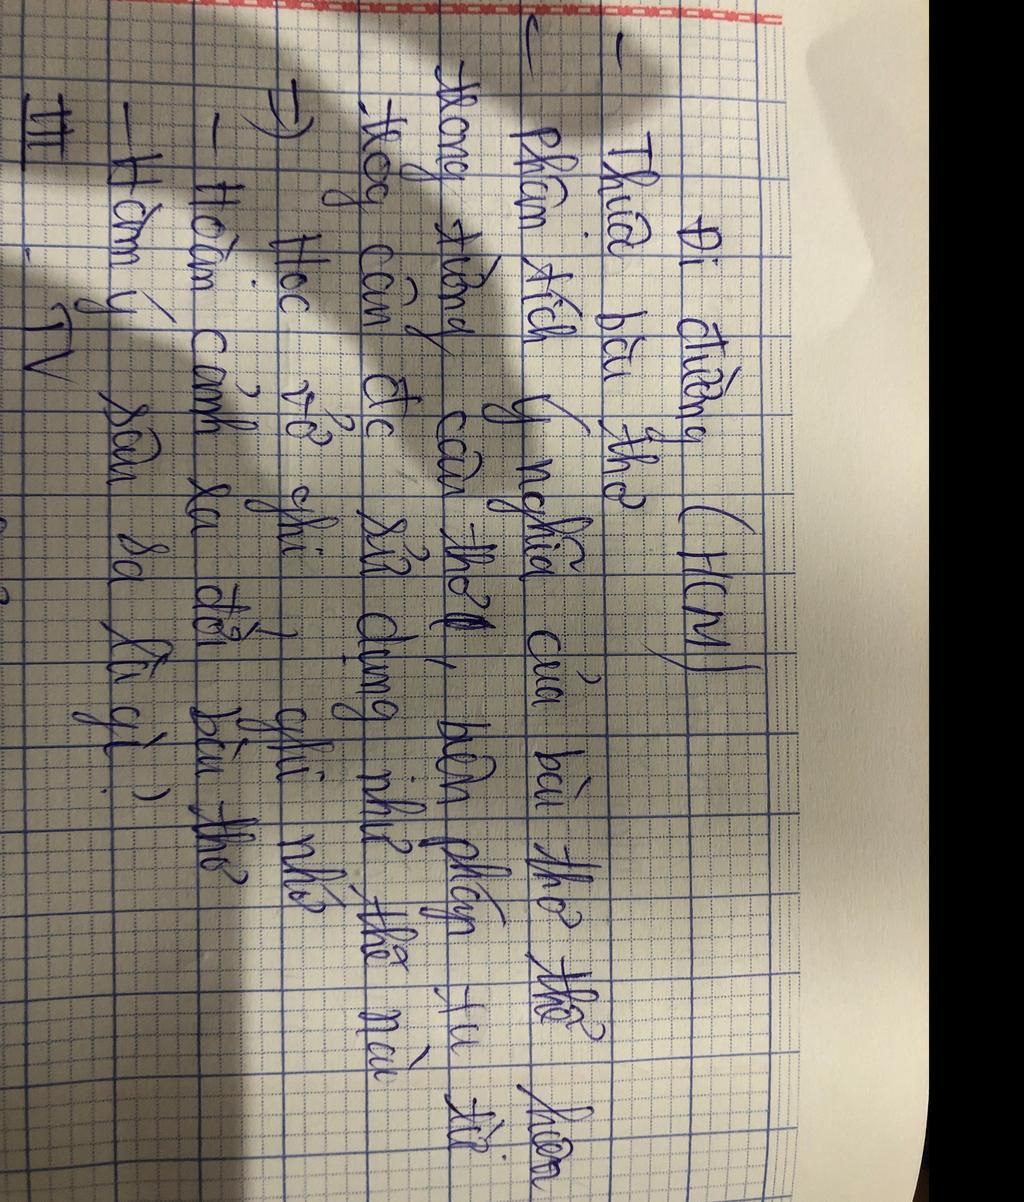 Đi đường (HCM)
- Thuộc bài thơ
- Phân tích ý nghĩa của bài thơ thể hiện
trong từng câu thơ, biện pháp tu từ
trog câu đc sử dụng như thế nào
→ Học vở ghi, ghi nhớ
- Hoàn cảnh ra đời bài thơ
- Hàm ý sâu sa là gì?
III. TV